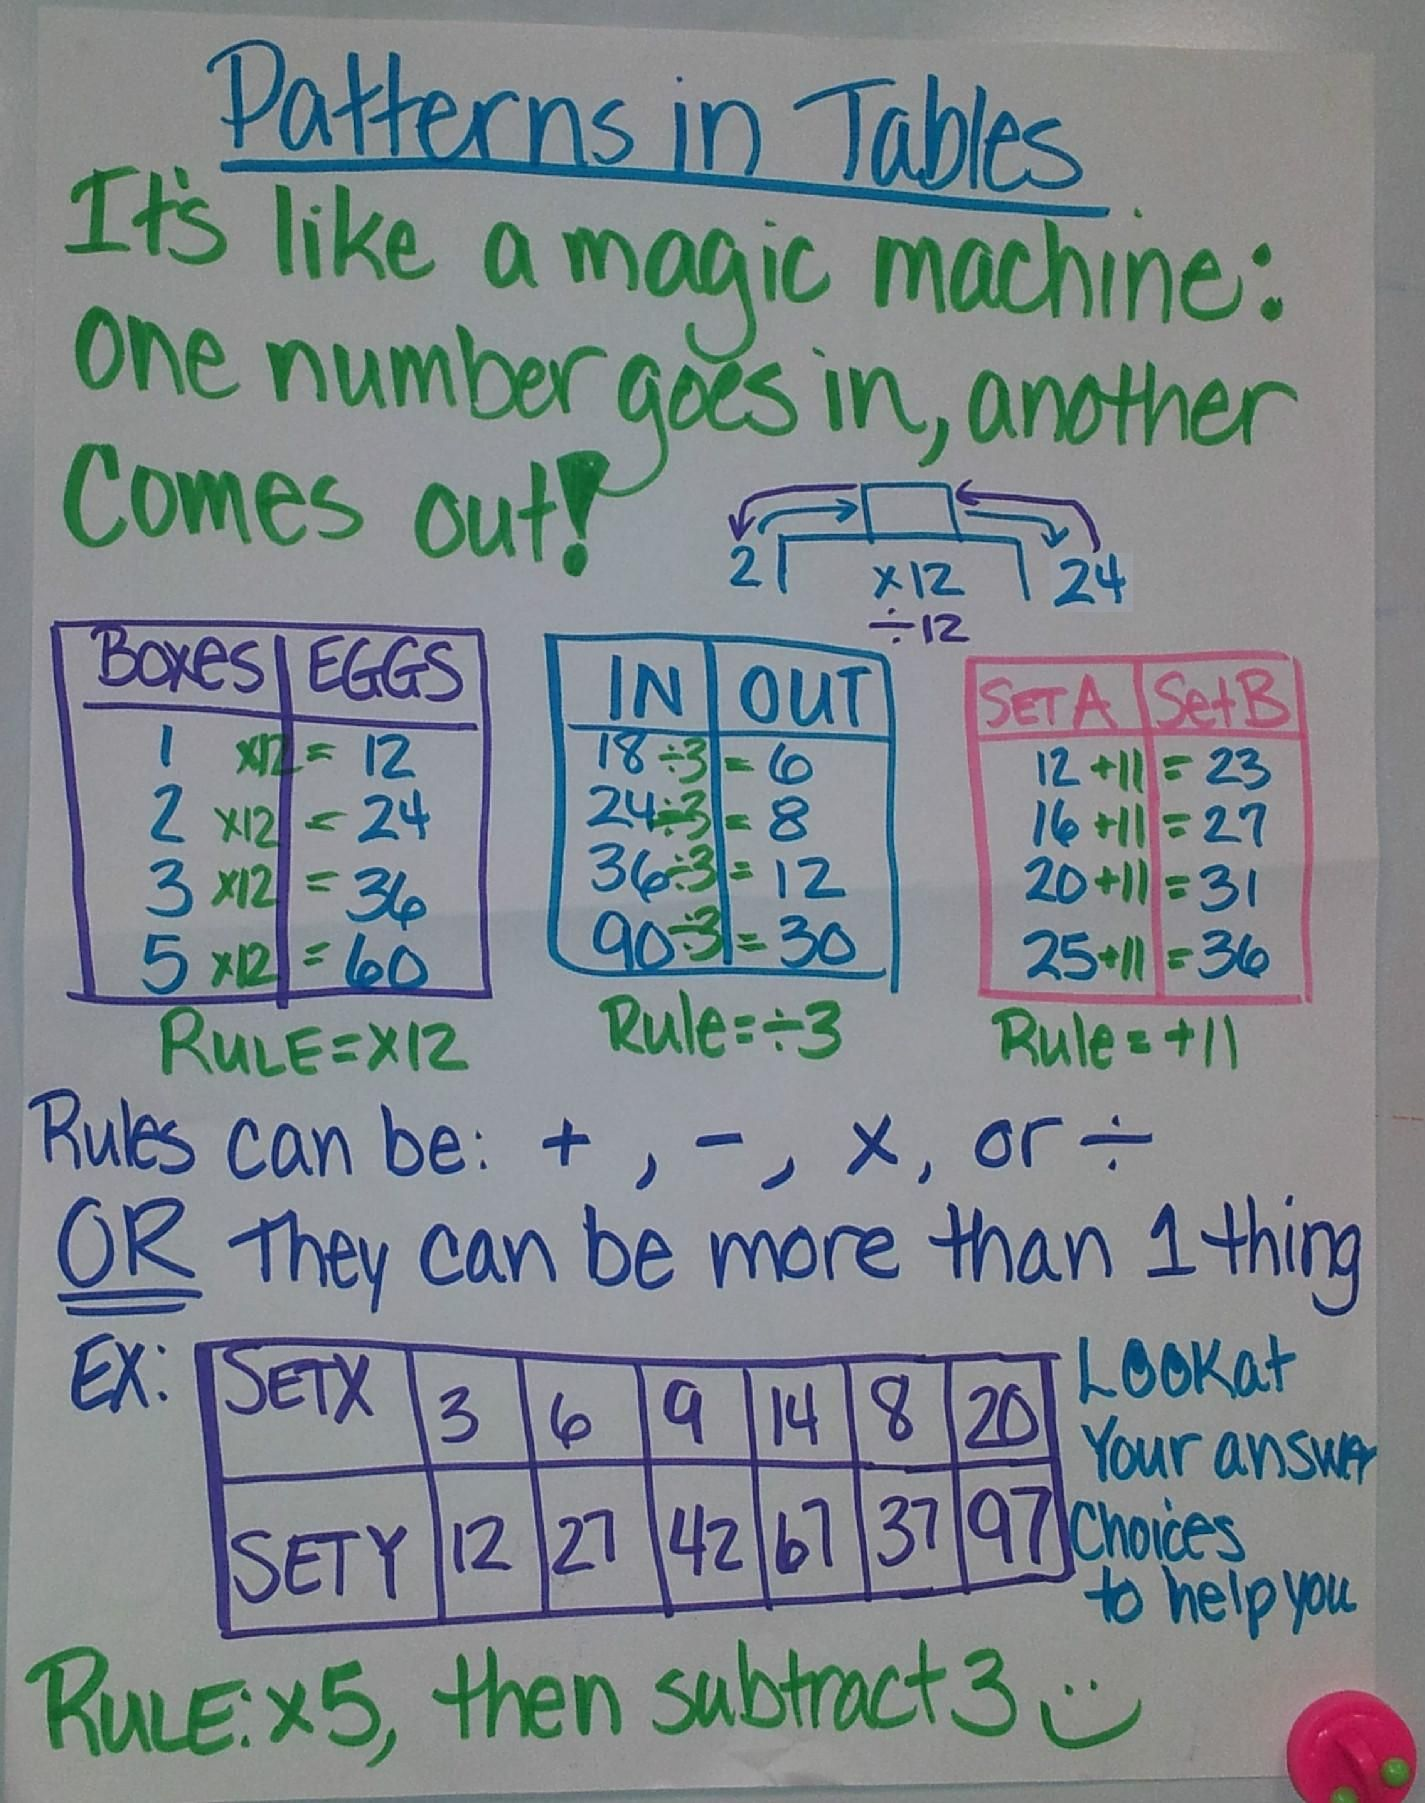 Patterns in Tables
It's like a magic machine:
one number goes in, another
Comes out!
2 x12 24
÷12
Boxes EGGS
1 x12 = 12
2 x12 = 24
3 x12 = 36
5 x12 = 60
RULE=x12
IN OUT
18÷3 = 6
24÷3 = 8
36÷3 = 12
90÷3 = 30
Rule=÷3
SET A Set B
12 +11 = 23
16 +11 = 27
20 +11 = 31
25+11 = 36
Rule = +11
Rules can be: +, -, x, or ÷
OR They can be more than 1 thing
EX:
SETX 3 6 9 14 8 20
SETY 12 27 42 67 37 97
LOOK at
Your answer
Choices
to help you
RULE: x5, then subtract 3